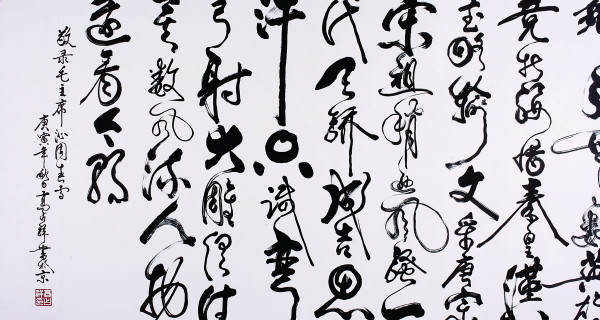 无数英
竞折腰惜秦皇汉
武略输文采唐宗
宋祖稍逊风骚一
代天骄成吉思
汗只识弯
弓射大雕俱往
矣数风流人物
还看今朝
敬录毛主席沁园春雪
庚寅年秋日高占祥書於京